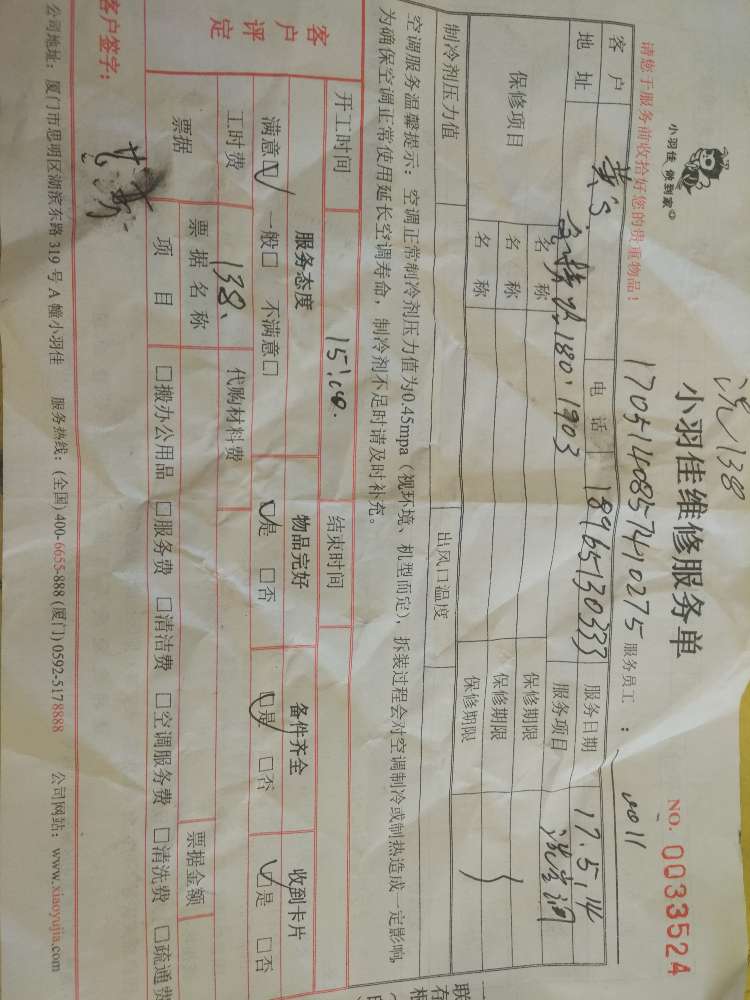 洗138
小羽佳 佣到家
小羽佳维修服务单
NO. 0033524
请您于服务前收拾好您的贵重物品！
1705140857410275 服务员工：
客户 黄 电话 18965130333 服务日期 17.5.14
地址 180.1903 服务项目 洗空调
保修项目 名称 保修期限
名称 保修期限
名称 保修期限
制冷剂压力值 出风口温度
空调服务温馨提示：空调正常制冷剂压力值为0.45mpa（视环境、机型而定），拆装过程会对空调制冷或制热造成一定影响，
为确保空调正常使用延长空调寿命，制冷剂不足时请及时补充。
开工时间 15:00. 结束时间
客户评定 服务态度 物品完好 备件齐全 收到卡片
满意☑ 一般□ 不满意□ ☑是 □否 ☑是 □否 ☑是 □否
工时费 138. 代购材料费
票据 票据名称 票据金额
项目 □搬办公用品 □服务费 □清洁费 □空调服务费 □清洗费 □疏通费
客户签字：
公司地址：厦门市思明区湖滨东路 319 号 A 幢小羽佳 服务热线：(全国) 400-6655-888 (厦门) 0592-5178888 公司网站：www.xiaoyujia.com
联
存
根